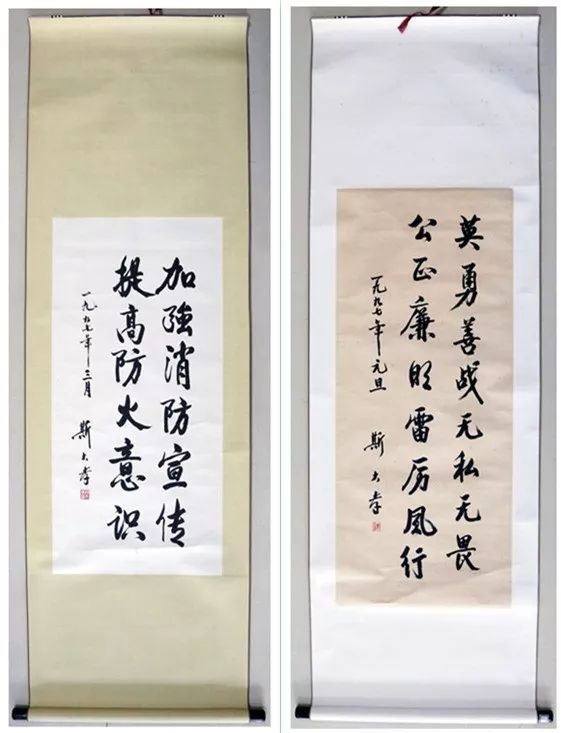 加強消防宣传
提高防火意识
一九九七年三月 斯大孝
英勇善战无私无畏
公正廉明雷厉风行
一九九七年元旦 斯大孝